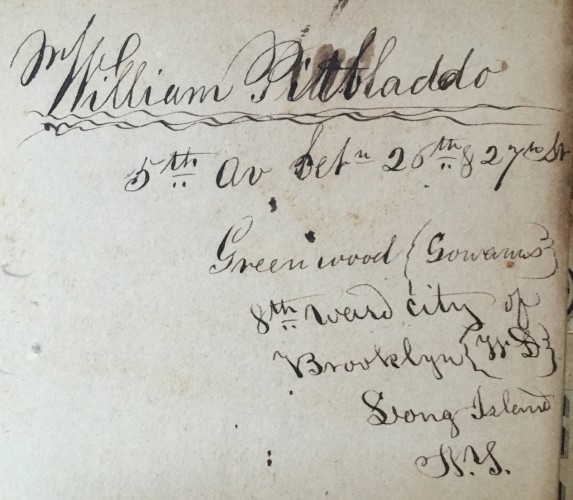 Mr. William Pitbladdo
5th av betn 26th & 27th St
Greenwood {Gowanus}
8th ward city of
Brooklyn {W D}
Long Island
N.Y.